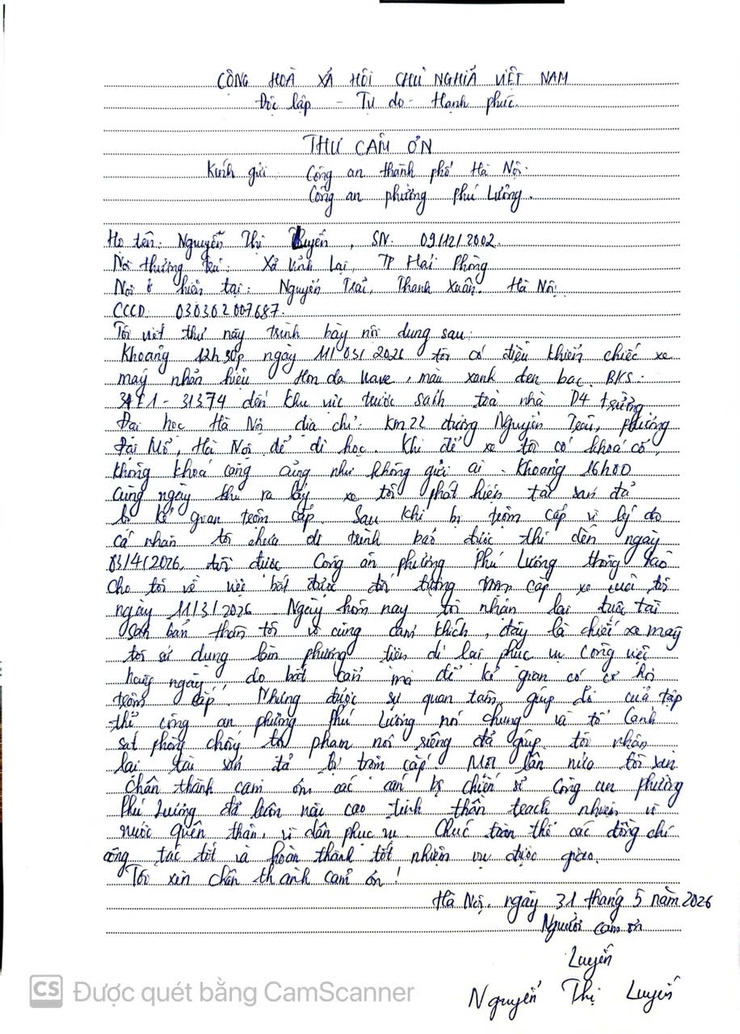 CỘNG HOÀ XÃ HỘI CHỦ NGHĨA VIỆT NAM
Độc lập - Tự do - Hạnh phúc.
THƯ CẢM ƠN
Kính gửi Công an thành phố Hà Nội.
Công an phường Phú Lương.
Họ tên: Nguyễn Thị Luyến, SN. 09/12/2002.
Nơi thường trú: Xã Vĩnh Lại, TP Hải Phòng
Nơi ở hiện tại: Nguyễn Trãi, Thanh Xuân. Hà Nội.
CCCD 030302007687.
Tôi viết thư này trình bày nội dung sau:
Khoảng 12h30p ngày 11/03/2026 tôi có điều khiển chiếc xe
máy nhãn hiệu Honda wave, màu xanh đen bạc. BKS:
31374 đến khu vực trước sảnh toà nhà D4 trường
Đại học Hà Nội địa chỉ: Km22 đường Nguyễn Trãi, phường
Đại Mỗ, Hà Nội để đi học. Khi để xe tôi có khoá cổ,
không khoá càng cũng như không gửi ai. Khoảng 16h00
cùng ngày khi ra lấy xe tôi phát hiện tài sản đã
bị kẻ gian trộm cắp. Sau khi bị trộm cắp vì lý do
cá nhân tôi chưa đi trình báo được thì đến ngày
03/4/2026, tôi được Công an phường Phú Lương thông báo
cho tôi về việc bắt được đối tượng trộm cắp xe của tôi
ngày 11/3/2026. Ngày hôm nay tôi nhận lại được tài
sản bản thân tôi vô cùng cảm kích, đây là chiếc xe máy
tôi sử dụng làm phương tiện đi lại phục vụ công việc
hàng ngày, do bất cẩn mà để kẻ gian có cơ hội
trộm cắp. Nhưng được sự quan tâm, giúp đỡ của tập
thể công an phường Phú Lương nói chung và tổ Cảnh
sát phòng chống tội phạm nói riêng đã giúp tôi nhận
lại tài sản đã bị trộm cắp. Một lần nữa tôi xin
chân thành cảm ơn các cán bộ chiến sĩ Công an phường
Phú Lương đã luôn nêu cao tinh thần trách nhiệm vì
nước quên thân, vì dân phục vụ. Chúc toàn thể các đồng chí
công tác tốt và hoàn thành tốt nhiệm vụ được giao.
Tôi xin chân thành cảm ơn!
Hà Nội, ngày 31 tháng 5 năm 2026
Người cảm ơn
Luyến
Nguyễn Thị Luyến
CS Được quét bằng CamScanner